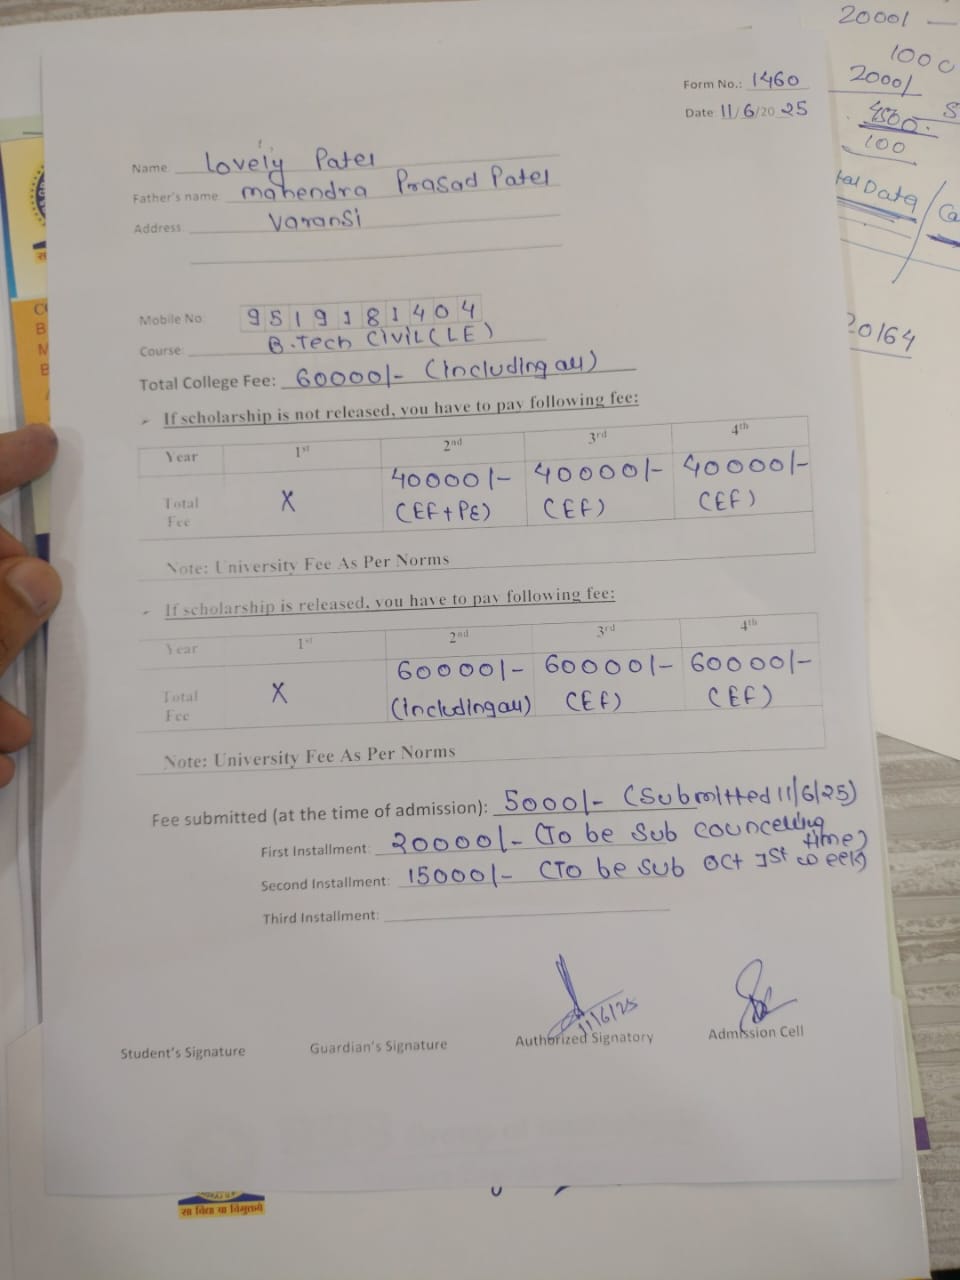 Form No.: 1460
Date 11/6/2025
Name Lovely Patel
Father's name mahendra Prasad Patel
Address Varansi
Mobile No: 9519181404
Course: B.Tech Civil (LE)
Total College Fee: 60000/- (including all)
If scholarship is not released, you have to pay following fee:
Year 1st 2nd 3rd 4th
Total Fee X 40000/- (EF+PE) 40000/- (EF) 40000/- (EF)
Note: University Fee As Per Norms
If scholarship is released, you have to pay following fee:
Year 1st 2nd 3rd 4th
Total Fee X 60000/- (including all) 60000/- (EF) 60000/- (EF)
Note: University Fee As Per Norms
Fee submitted (at the time of admission): 5000/- (Submitted 11/6/25)
First Installment: 20000/- (To be sub councelling time)
Second Installment: 15000/- (To be sub Oct 1st week)
Third Installment:
11/6/25
Student's Signature Guardian's Signature Authorized Signatory Admission Cell
सा विद्या या विमुक्तये
20001 -
1000
2000/
4500.
100
Data
20164